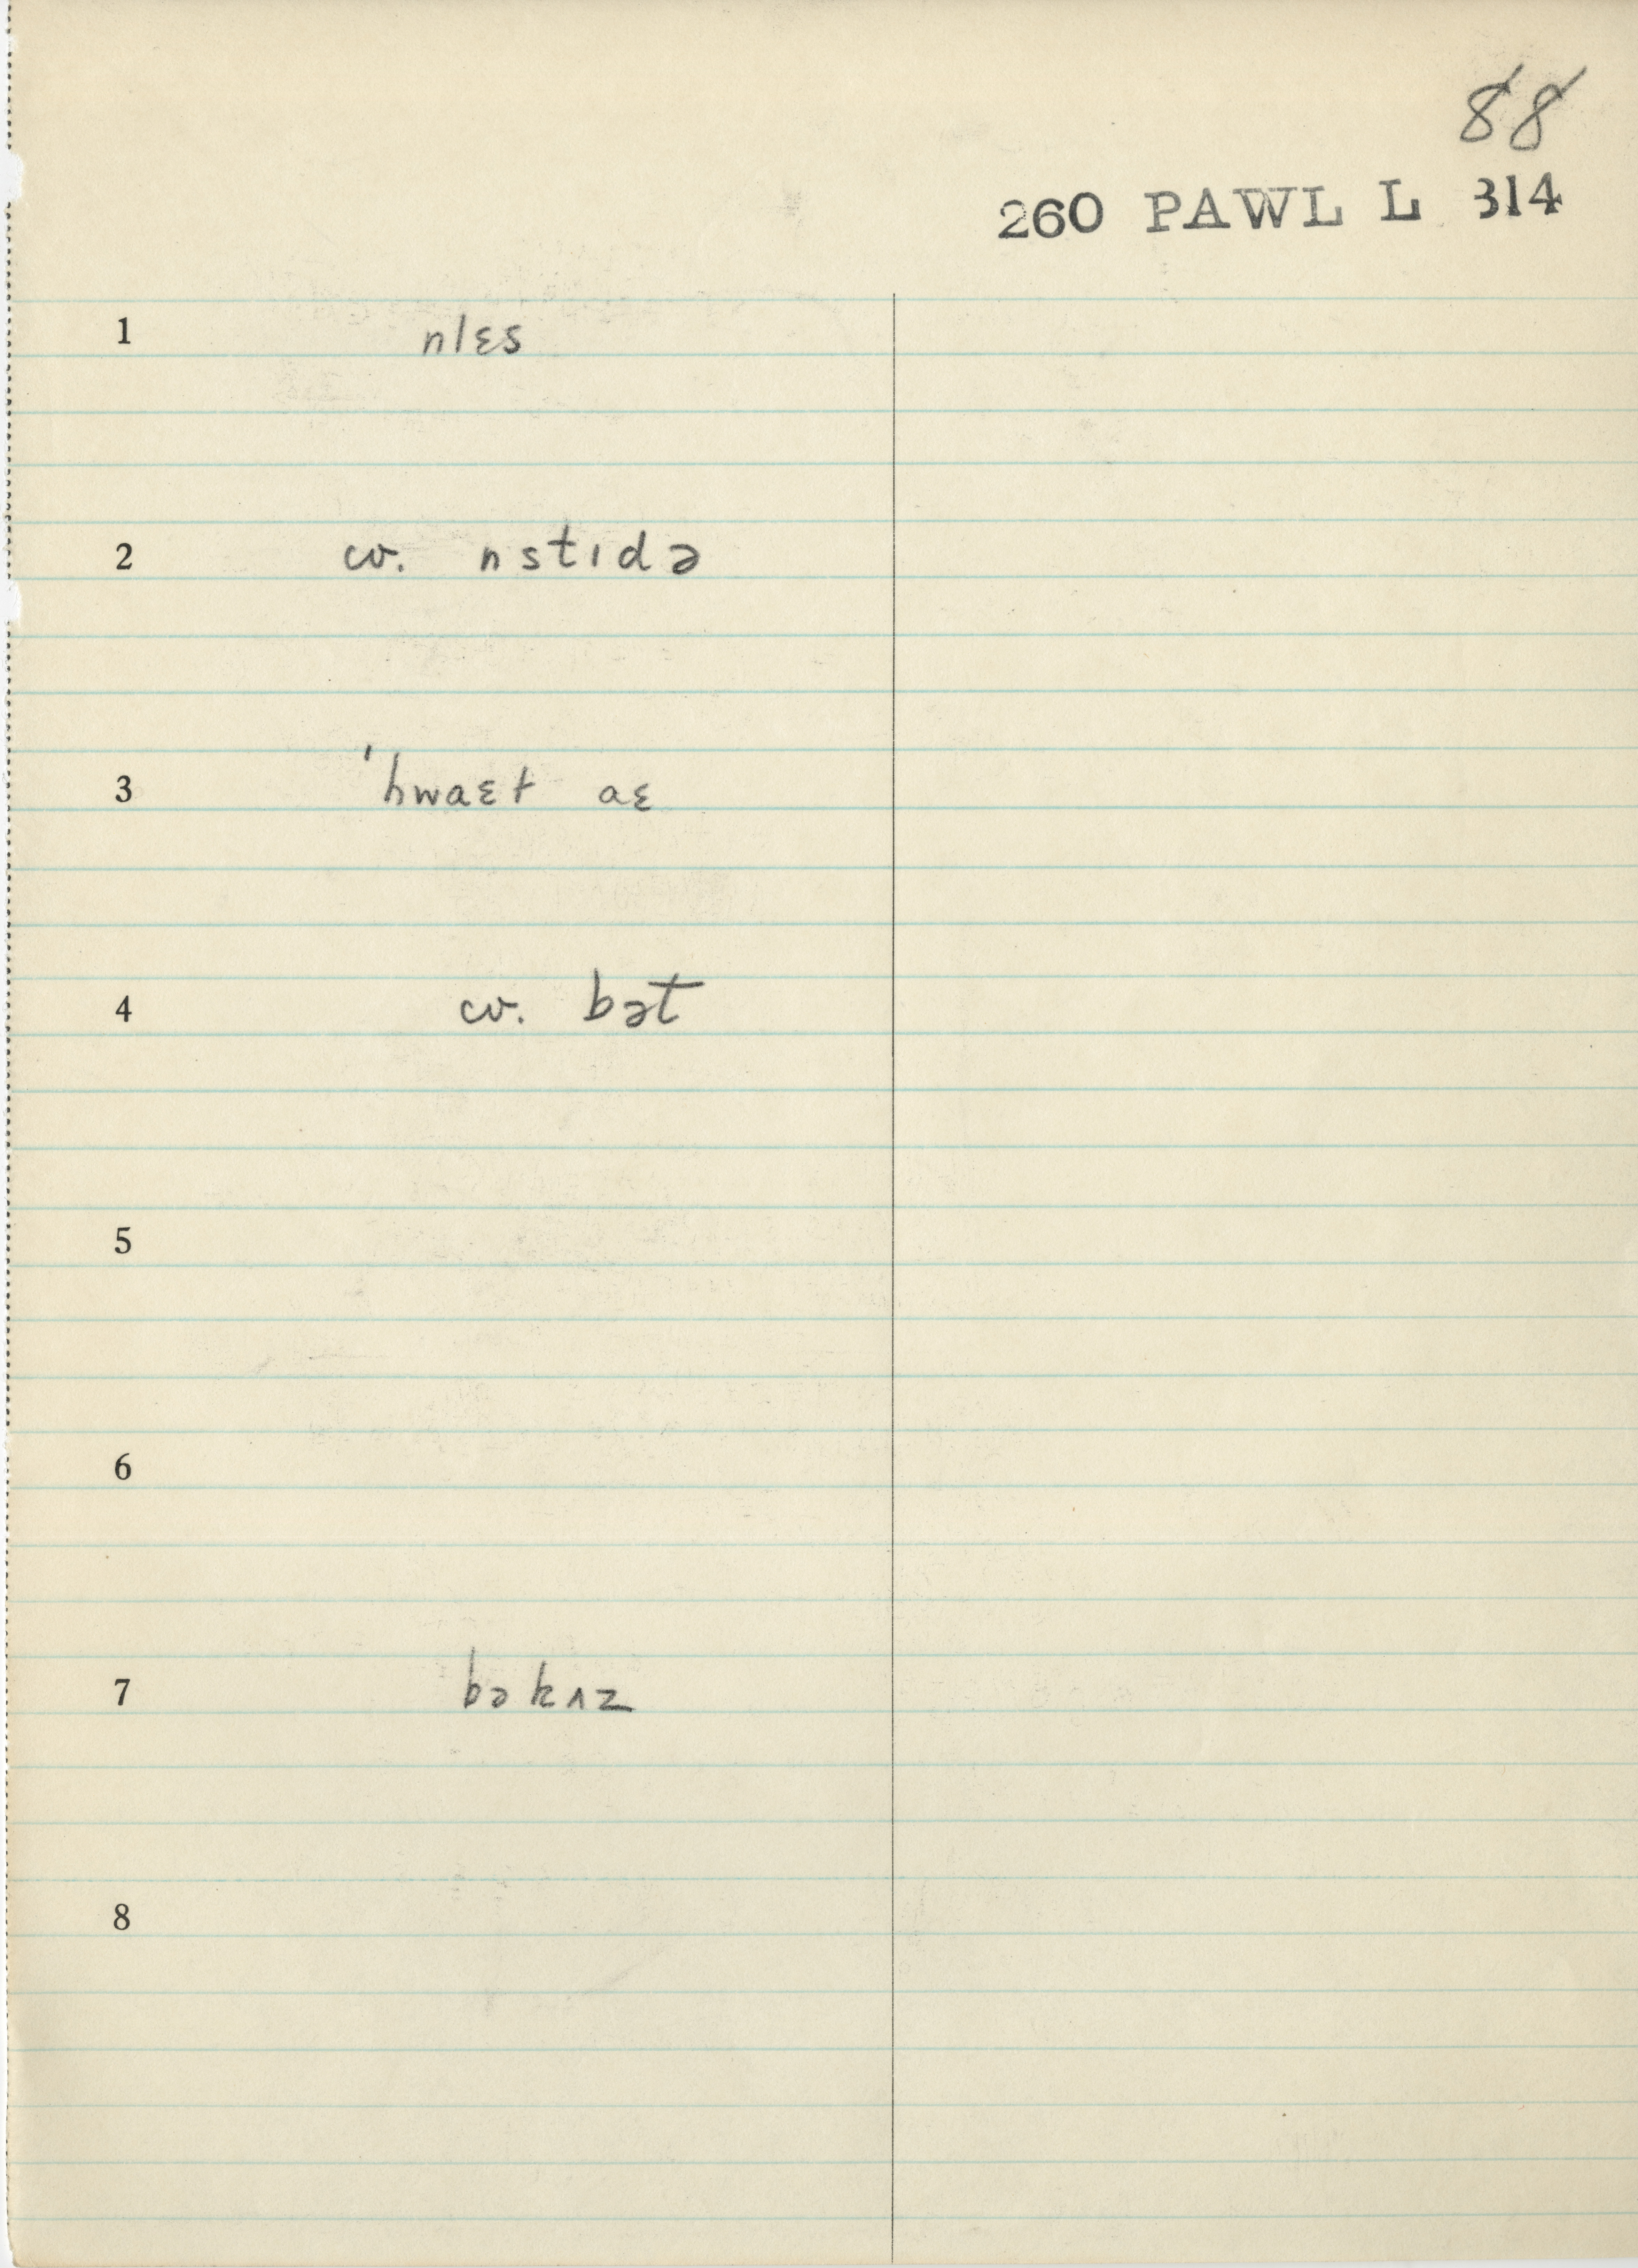 88
260 PAWL L 314
1 nlɛs
2 cv. nstɪdə
3 ˈhwaɛt aɛ
4 cv. bət
5
6
7 bəkʌz
8